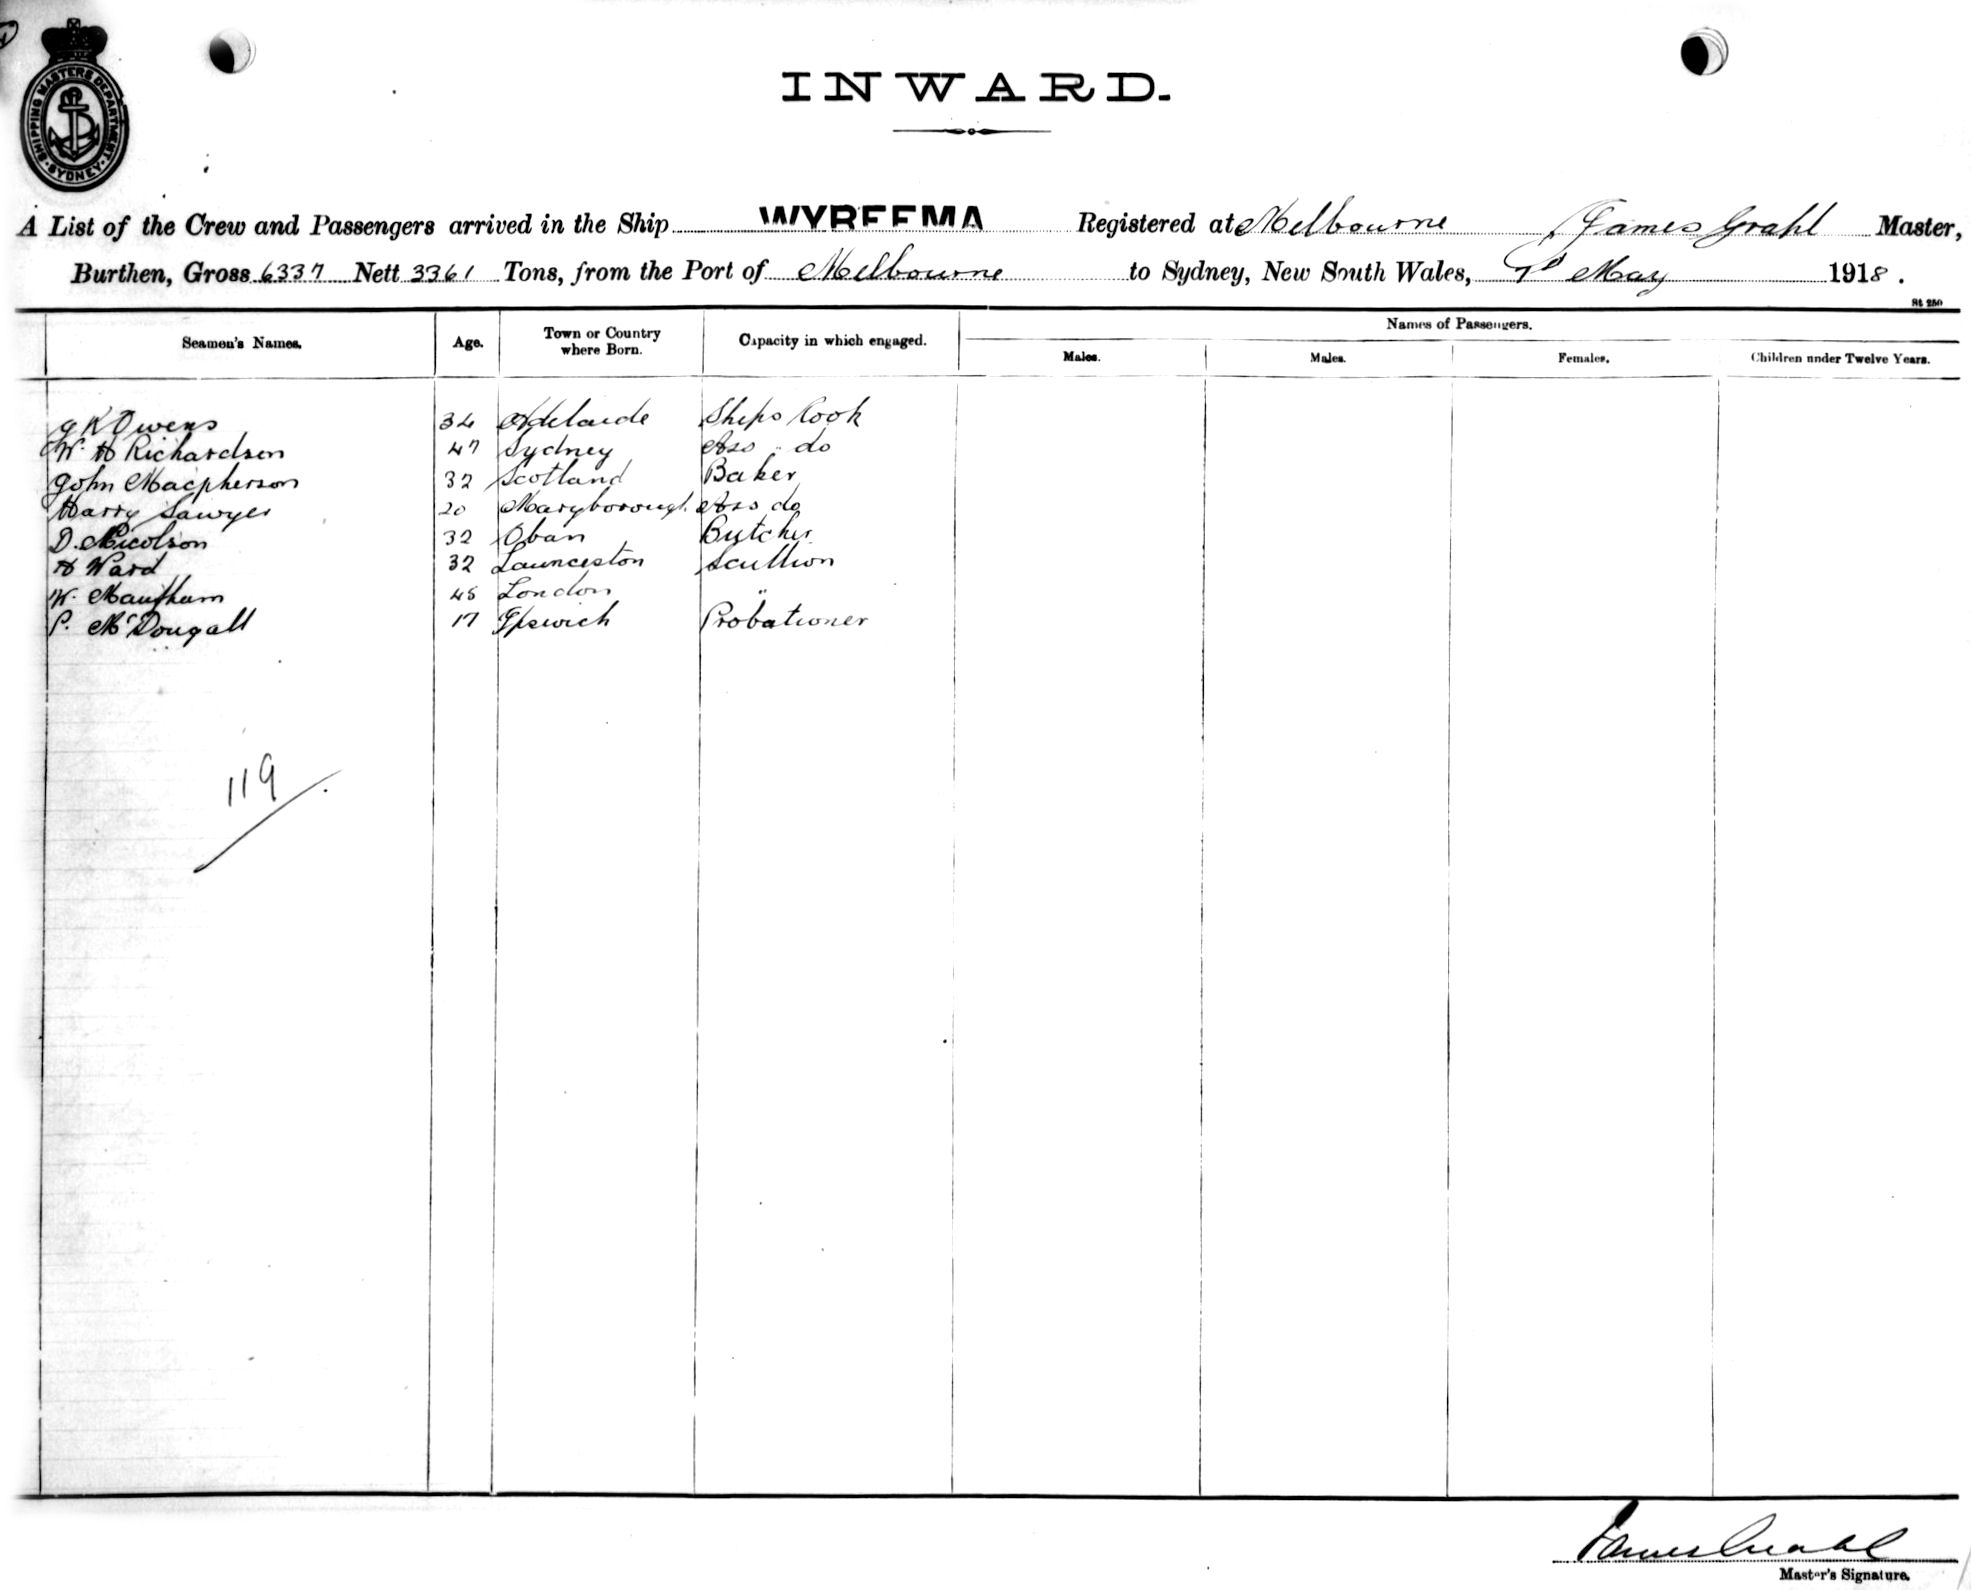 SHIPPING MASTERS DEPARTMENT
SYDNEY
INWARD.
A List of the Crew and Passengers arrived in the Ship WYREEMA Registered at Melbourne James Grahl Master,
Burthen, Gross 6337 Nett 3361 Tons, from the Port of Melbourne to Sydney, New South Wales, May 1918.
St 250
Seamen's Names. Age. Town or Country where Born. Capacity in which engaged. Names of Passengers.
Males. Males. Females. Children under Twelve Years.
G K Owens 34 Adelaide Ships Cook
W. H Richardson 47 Sydney Ass " do
John Macpherson 32 Scotland Baker
Harry Sawyer 20 Maryborough Ass do
D. Nicolson 32 Oban Butcher
H Ward 32 Launceston Scullion
W. 45 London "
P. McDougall 17 Ipswich Probationer
119
James Grahl
Master's Signature.